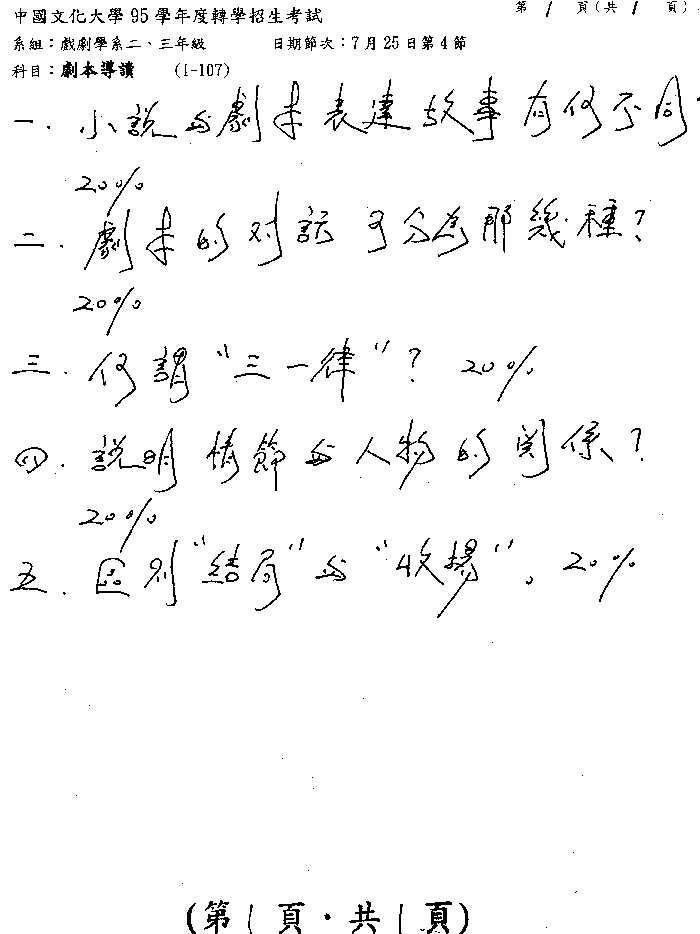 中國文化大學95學年度轉學招生考試 第 1 頁(共 1 頁)
系組：戲劇學系二、三年級 日期節次：7月25日第4節
科目：劇本導讀 (I-107)
一. 小說与劇本表達故事有何不同
20%
二. 劇本的对話可分為那幾種?
20%
三. 何謂“三一律”? 20%
四. 說明情節与人物的関係?
20%
五. 區别“結局”与“收場”。20%
(第 1 頁·共 1 頁)